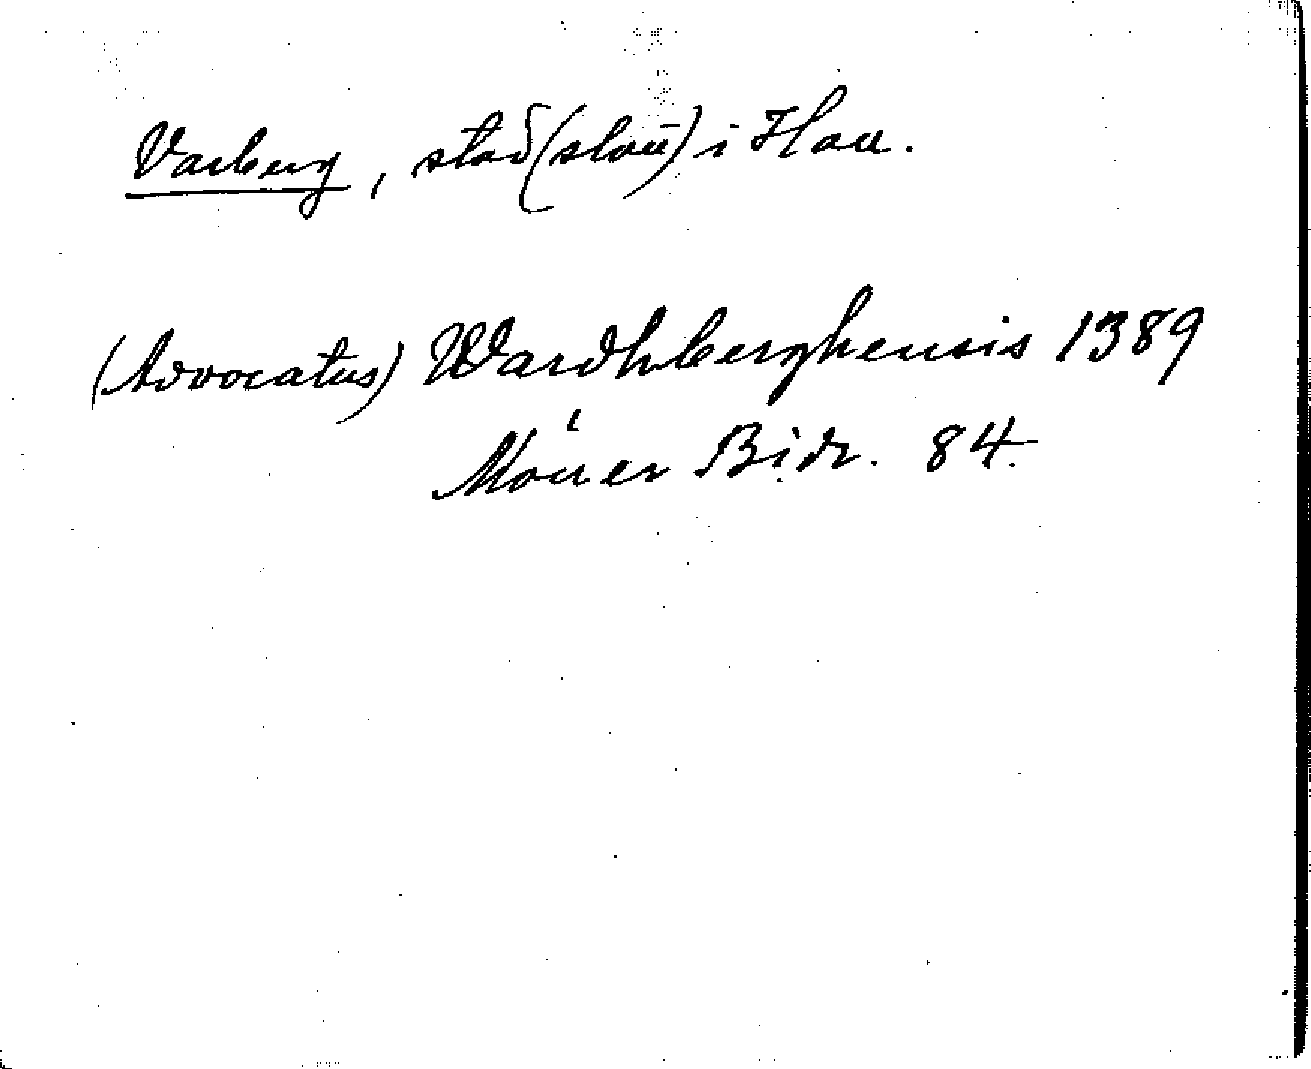 Varberg, stad (slott) i Hall.
(Advocatus) Wardhberghensis 1389
Mörner Bidr. 84.